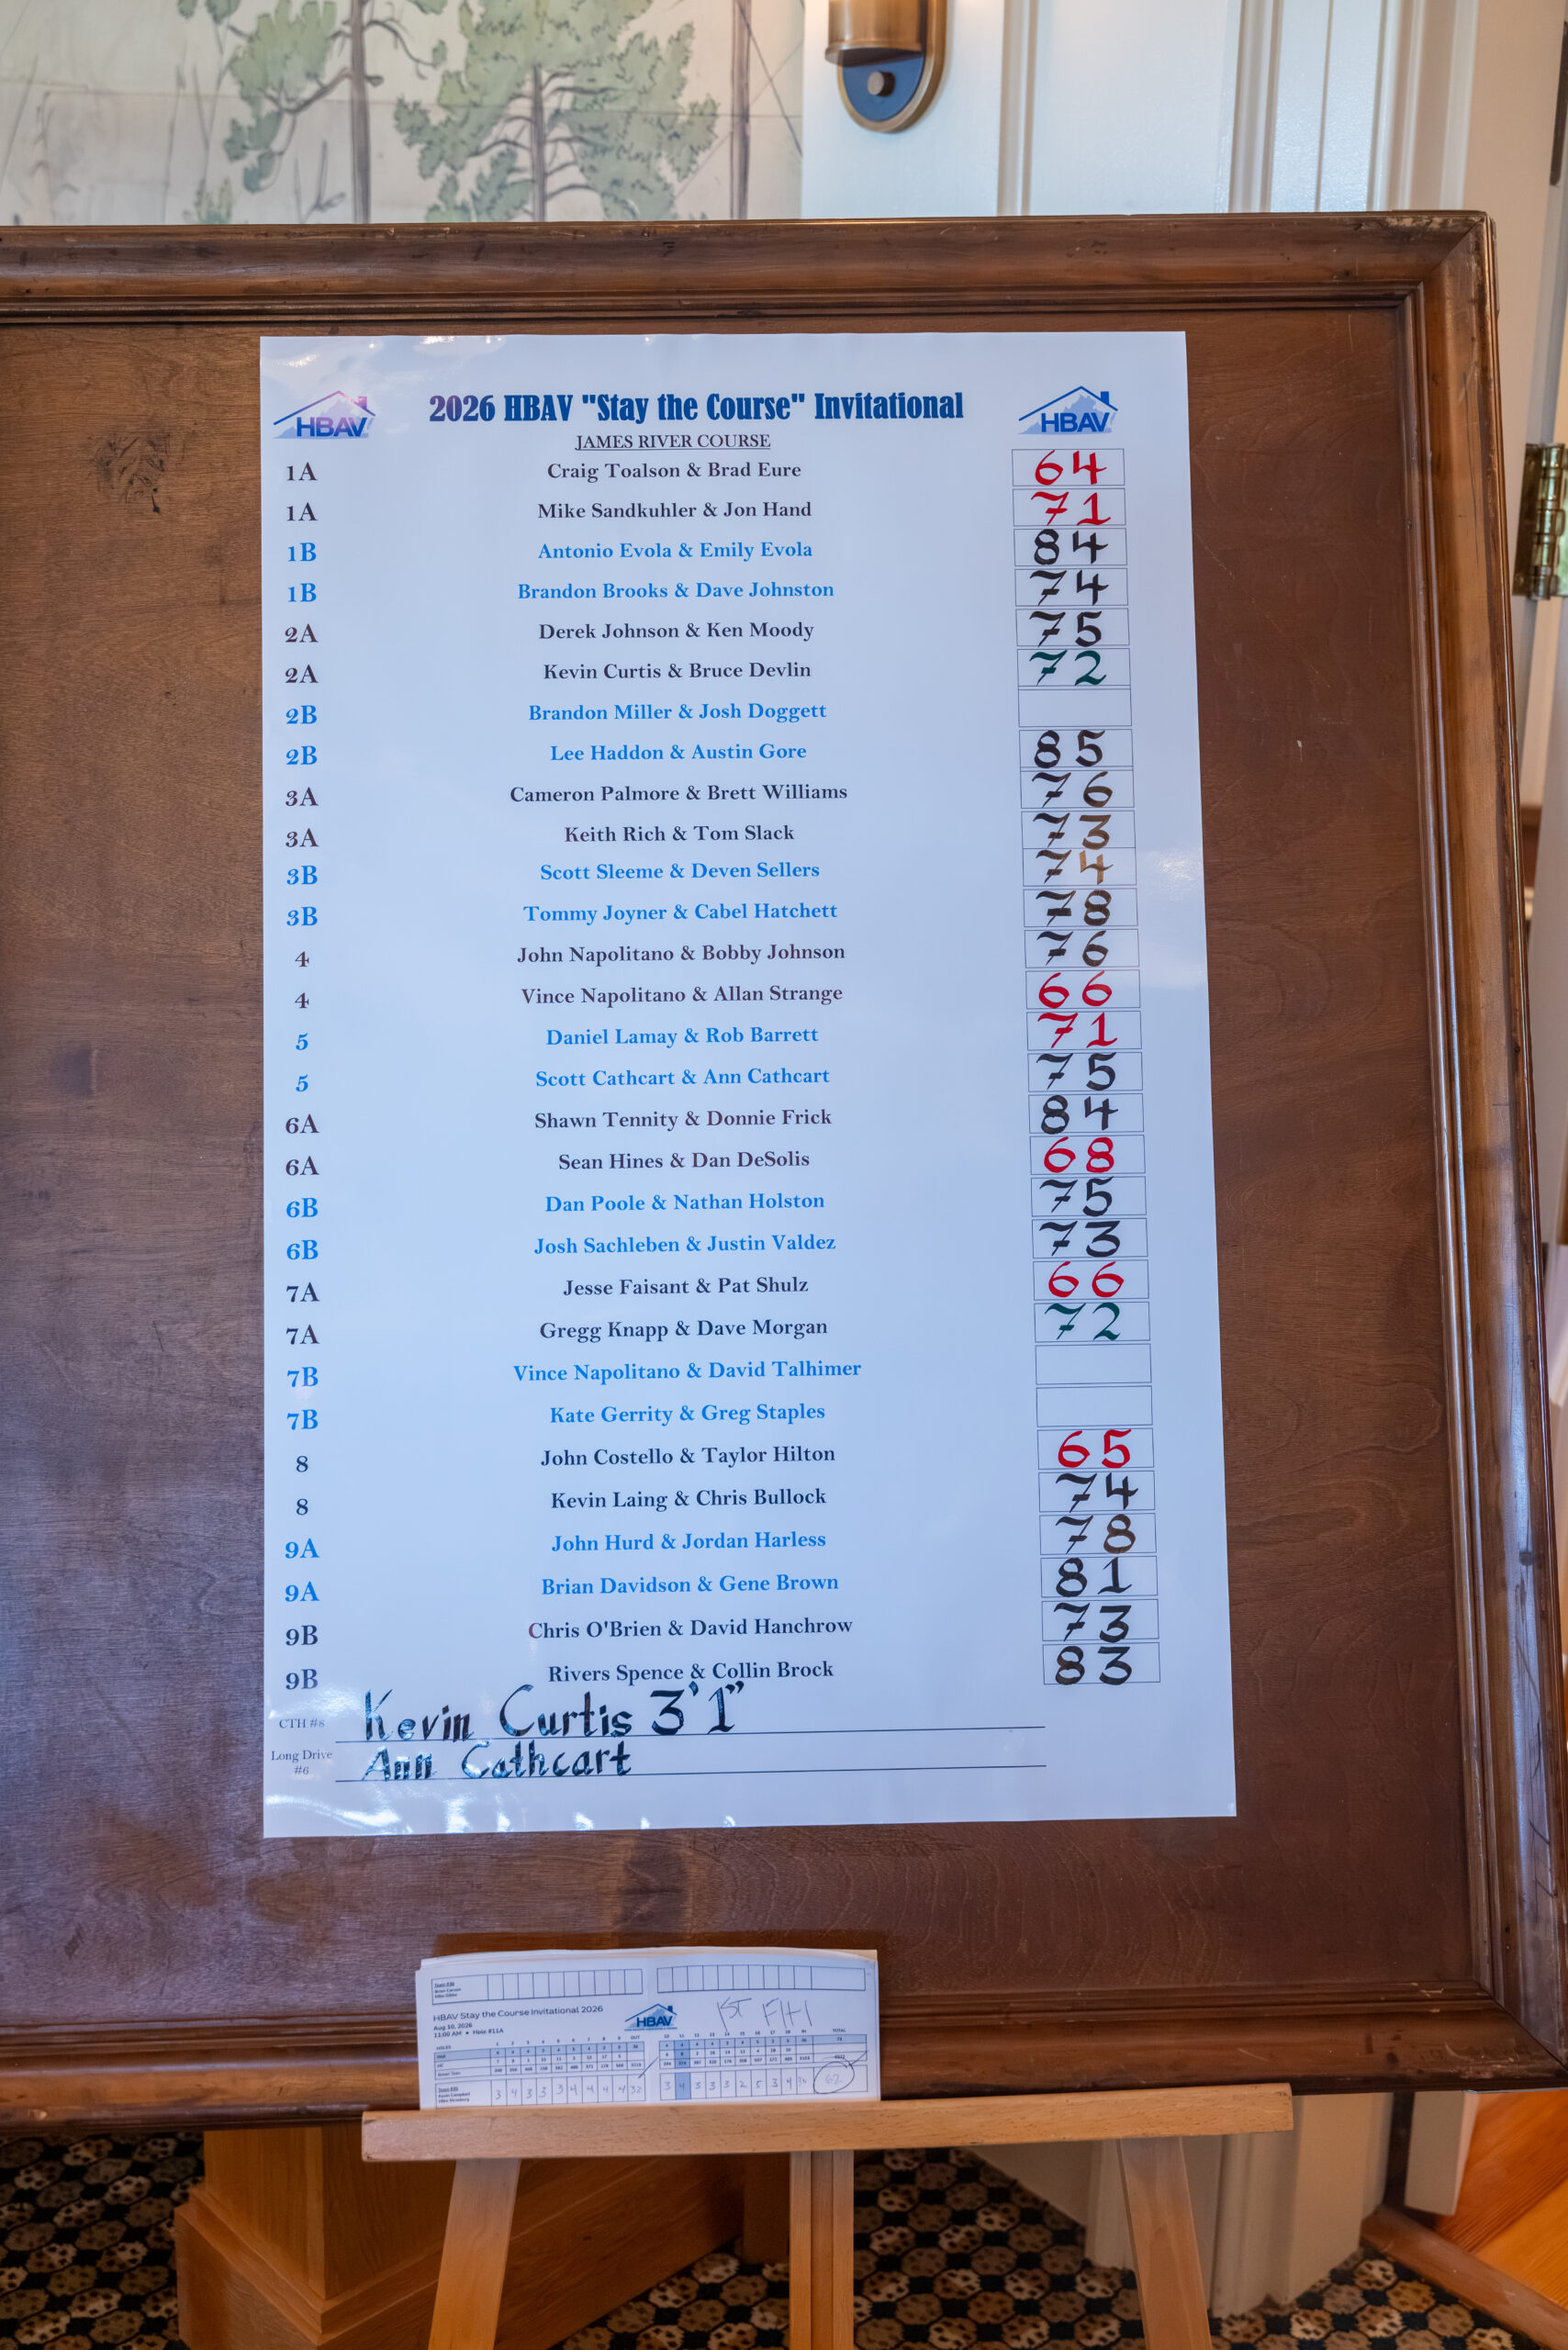 HBAV
2026 HBAV "Stay the Course" Invitational
HBAV
JAMES RIVER COURSE
1A Craig Toalson & Brad Eure 64
1A Mike Sandkuhler & Jon Hand 71
1B Antonio Evola & Emily Evola 84
1B Brandon Brooks & Dave Johnston 74
2A Derek Johnson & Ken Moody 75
2A Kevin Curtis & Bruce Devlin 72
2B Brandon Miller & Josh Doggett
2B Lee Haddon & Austin Gore 85
3A Cameron Palmore & Brett Williams 76
3A Keith Rich & Tom Slack 73
3B Scott Sleeme & Deven Sellers 74
3B Tommy Joyner & Cabel Hatchett 78
4 John Napolitano & Bobby Johnson 76
4 Vince Napolitano & Allan Strange 66
5 Daniel Lamay & Rob Barrett 71
5 Scott Cathcart & Ann Cathcart 75
6A Shawn Tennity & Donnie Frick 84
6A Sean Hines & Dan DeSolis 68
6B Dan Poole & Nathan Holston 75
6B Josh Sachleben & Justin Valdez 73
7A Jesse Faisant & Pat Shulz 66
7A Gregg Knapp & Dave Morgan 72
7B Vince Napolitano & David Talhimer
7B Kate Gerrity & Greg Staples
8 John Costello & Taylor Hilton 65
8 Kevin Laing & Chris Bullock 74
9A John Hurd & Jordan Harless 78
9A Brian Davidson & Gene Brown 81
9B Chris O'Brien & David Hanchrow 73
9B Rivers Spence & Collin Brock 83
CTH #8 Kevin Curtis 3'1"
Long Drive #6 Ann Cathcart
HBAV Stay the Course Invitational 2026
HBAV
1ST
Aug 10, 2026
11:00 AM • Hole #11A
HOLES
OUT
TOTAL
3 4 3 3 3 4 4 4 4 32
62